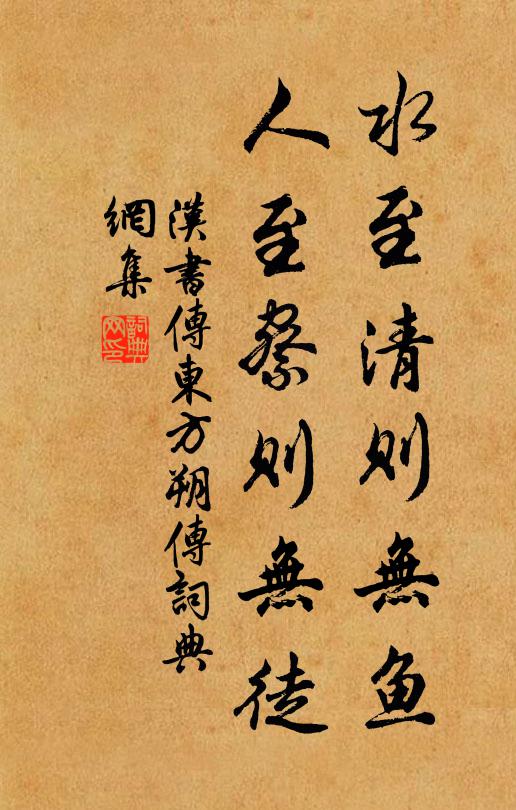 水至清则無鱼
人至察则無徒
漢書傳東方朔傳詞典
網集
詞典网印